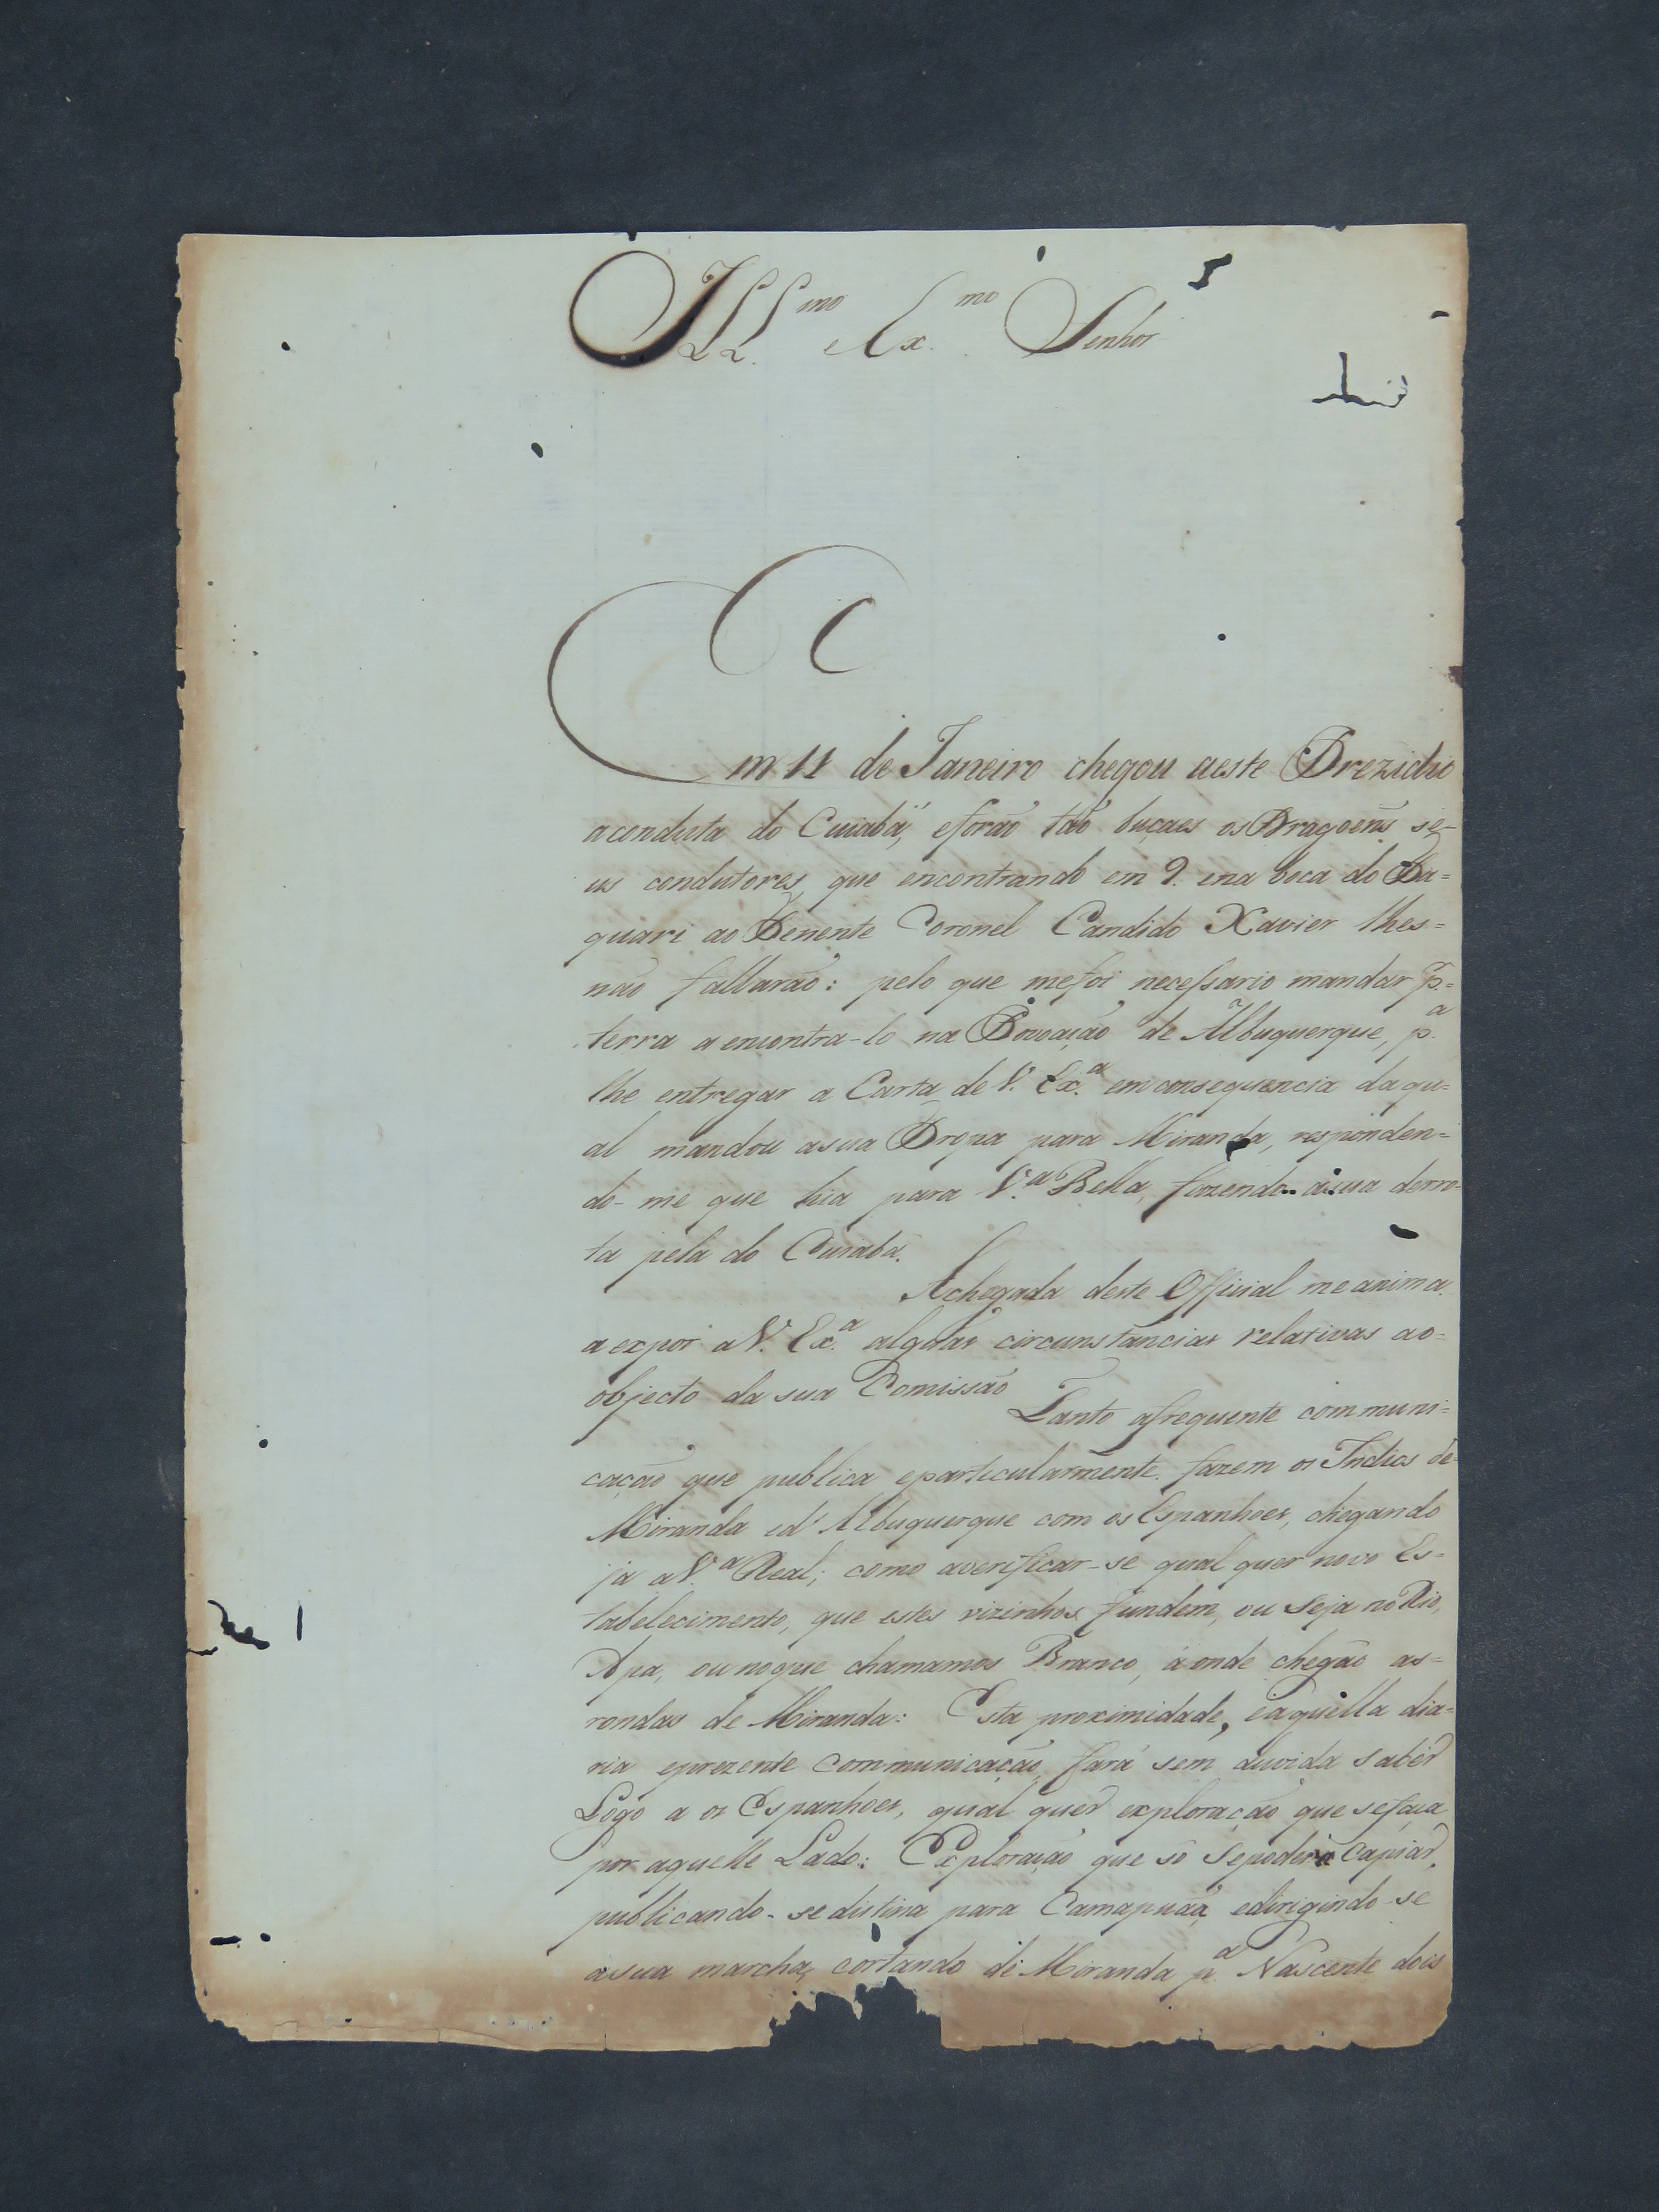 Ill.mo e Ex.mo Senhor
Em 11 de Janeiro chegou aeste Prezidio
aconduta do Cuiabá, eforão tão buçaes os Dragoens se-
us condutores, que encontrando em 9. ena boca do Ta=
quari ao Tenente Coronel Candido Xavier lhes=
não fallarão: pelo que mefoi necessario mandar p.=
terra aencontra-lo na Povoação de Albuquerque, p.a
lhe entregar a Carta de V. Ex.a em consequencia daqu=
al mandou asua Tropa para Miranda, responden=
do-me que hia para V.a Bella, fazendo asua derro-
ta pela do Cuiabá.
Achegada deste Official me anima
aexpor aV. Ex.a alguãs circunstancias relativas ao=
objecto da sua Comissão
Tanto afrequente communi=
cação que publica eparticularmente fazem os Indios de=
Miranda ed' Albuquerque com os Espanhoes, chegando
já aV.a Real; como averificar-se qual quer novo Es=
tabelecimento, que estes vizinhos fundem, ou seja no Rio
Apa, ou noque chamamos Branco, áonde chegão as=
rondas de Miranda: Esta proximidade, eaquella dia=
ria eprezente communicação, fará sem duvida saber
Logo a os Espanhoes, qual quer exploração que sefaça
por aquelle Lado: Exploração que só sepoderá Capiar,
publicando-se distina para Camapuãa, edirigindo-se
asua marcha, cortando de Miranda p.a Nascente dois